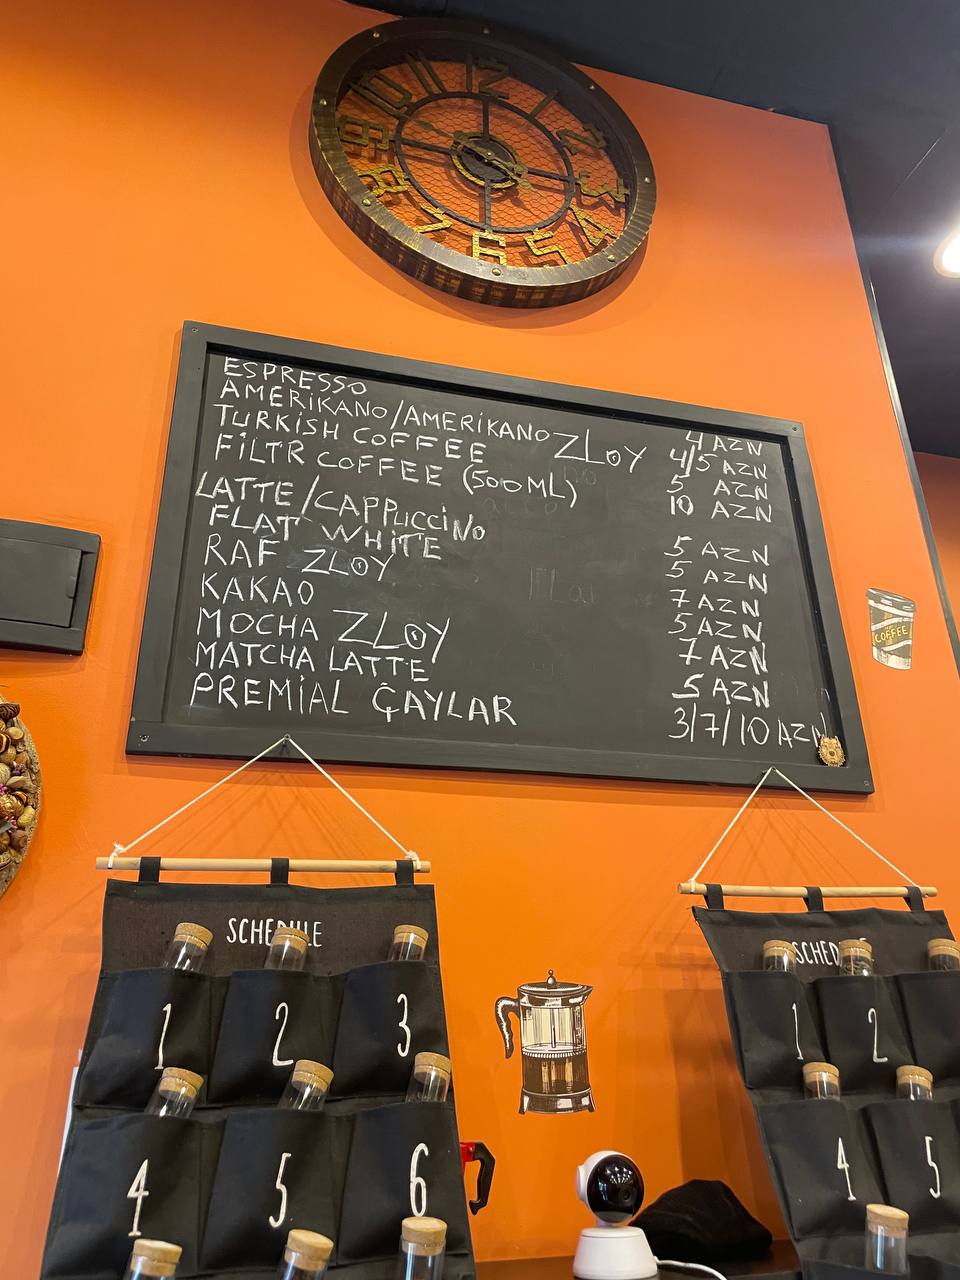 10 11 12 1 2 3 4 5 6 7 8 9
ESPRESSO 4 AZN
AMERİKANO/AMERİKANO ZLOY 4/5 AZN
TURKİSH COFFEE 5 AZN
FİLTR COFFEE (500ML) 10 AZN
LATTE/CAPPUCCİNO 5 AZN
FLAT WHİTE 5 AZN
RAF ZLOY 7 AZN
KAKAO 5 AZN
MOCHA ZLOY 7 AZN
MATCHA LATTE 5 AZN
PREMİAL ÇAYLAR 3/7/10 AZN
COFFEE
SCHEDULE
1 2 3
4 5 6
SCHEDULE
1 2
4 5